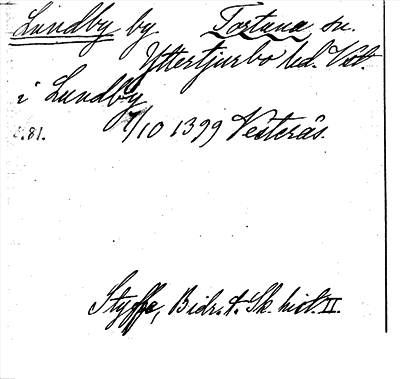 Lundby by Tortuna sn.
Yttertjurbo hd. Vstl.
i Lundby
s.81. 7/10 1399 Vesterås.
Styffe, Bidr. t. Sk. hist. II.